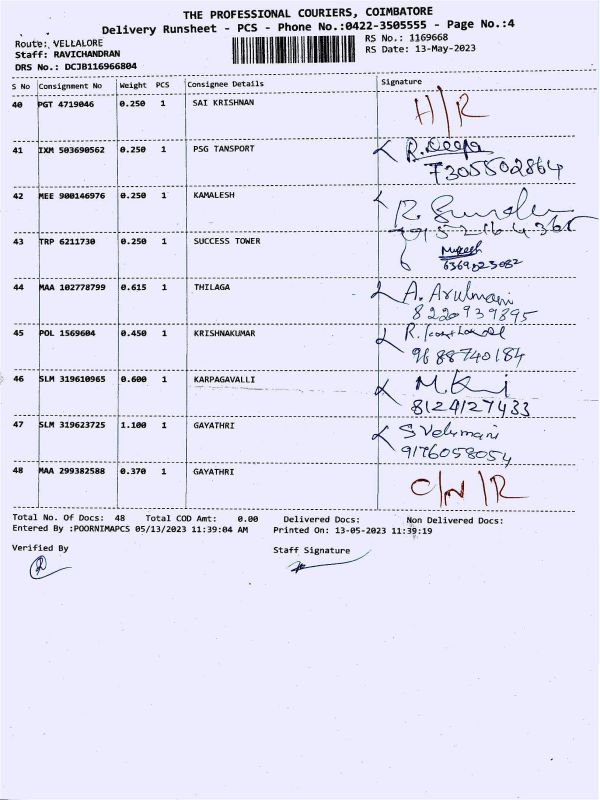 THE PROFESSIONAL COURIERS, COIMBATORE
Delivery Runsheet - PCS - Phone No.:0422-3505555 - Page No.:4
Route: VELLALORE RS No.: 1169668
Staff: RAVICHANDRAN RS Date: 13-May-2023
DRS No.: DCJB116966804
S No Consignment No Weight PCS Consignee Details Signature
40 PGT 4719046 0.250 1 SAI KRISHNAN H/R
41 IXM 503690562 0.250 1 PSG TANSPORT R. Deepa
7305502864
42 MEE 900146976 0.250 1 KAMALESH
43 TRP 6211730 0.250 1 SUCCESS TOWER
6369023082
44 MAA 102778799 0.615 1 THILAGA A. Arulmani
8220939895
45 POL 1569604 0.450 1 KRISHNAKUMAR R.
9688740184
46 SLM 319610965 0.600 1 KARPAGAVALLI M.
8124127433
47 SLM 319623725 1.100 1 GAYATHRI S Velumani
9176058054
48 MAA 299382588 0.370 1 GAYATHRI O/N/R
Total No. Of Docs: 48 Total COD Amt: 0.00 Delivered Docs: Non Delivered Docs:
Entered By :POORNIMAPCS 05/13/2023 11:39:04 AM Printed On: 13-05-2023 11:39:19
Verified By Staff Signature